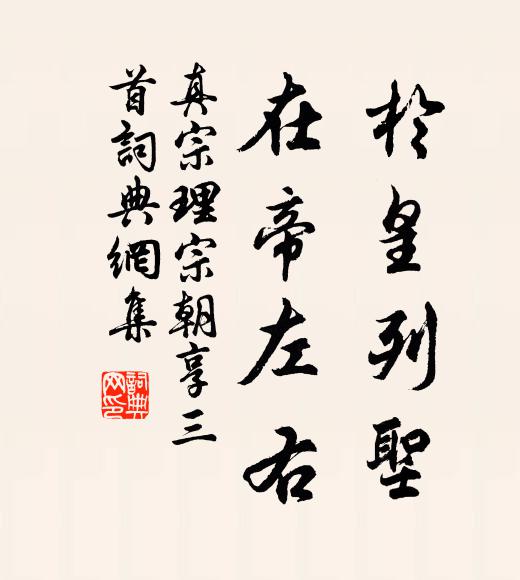 於皇列聖
在帝左右
真宗理宗朝享三
首詞典網集
詞典
网印